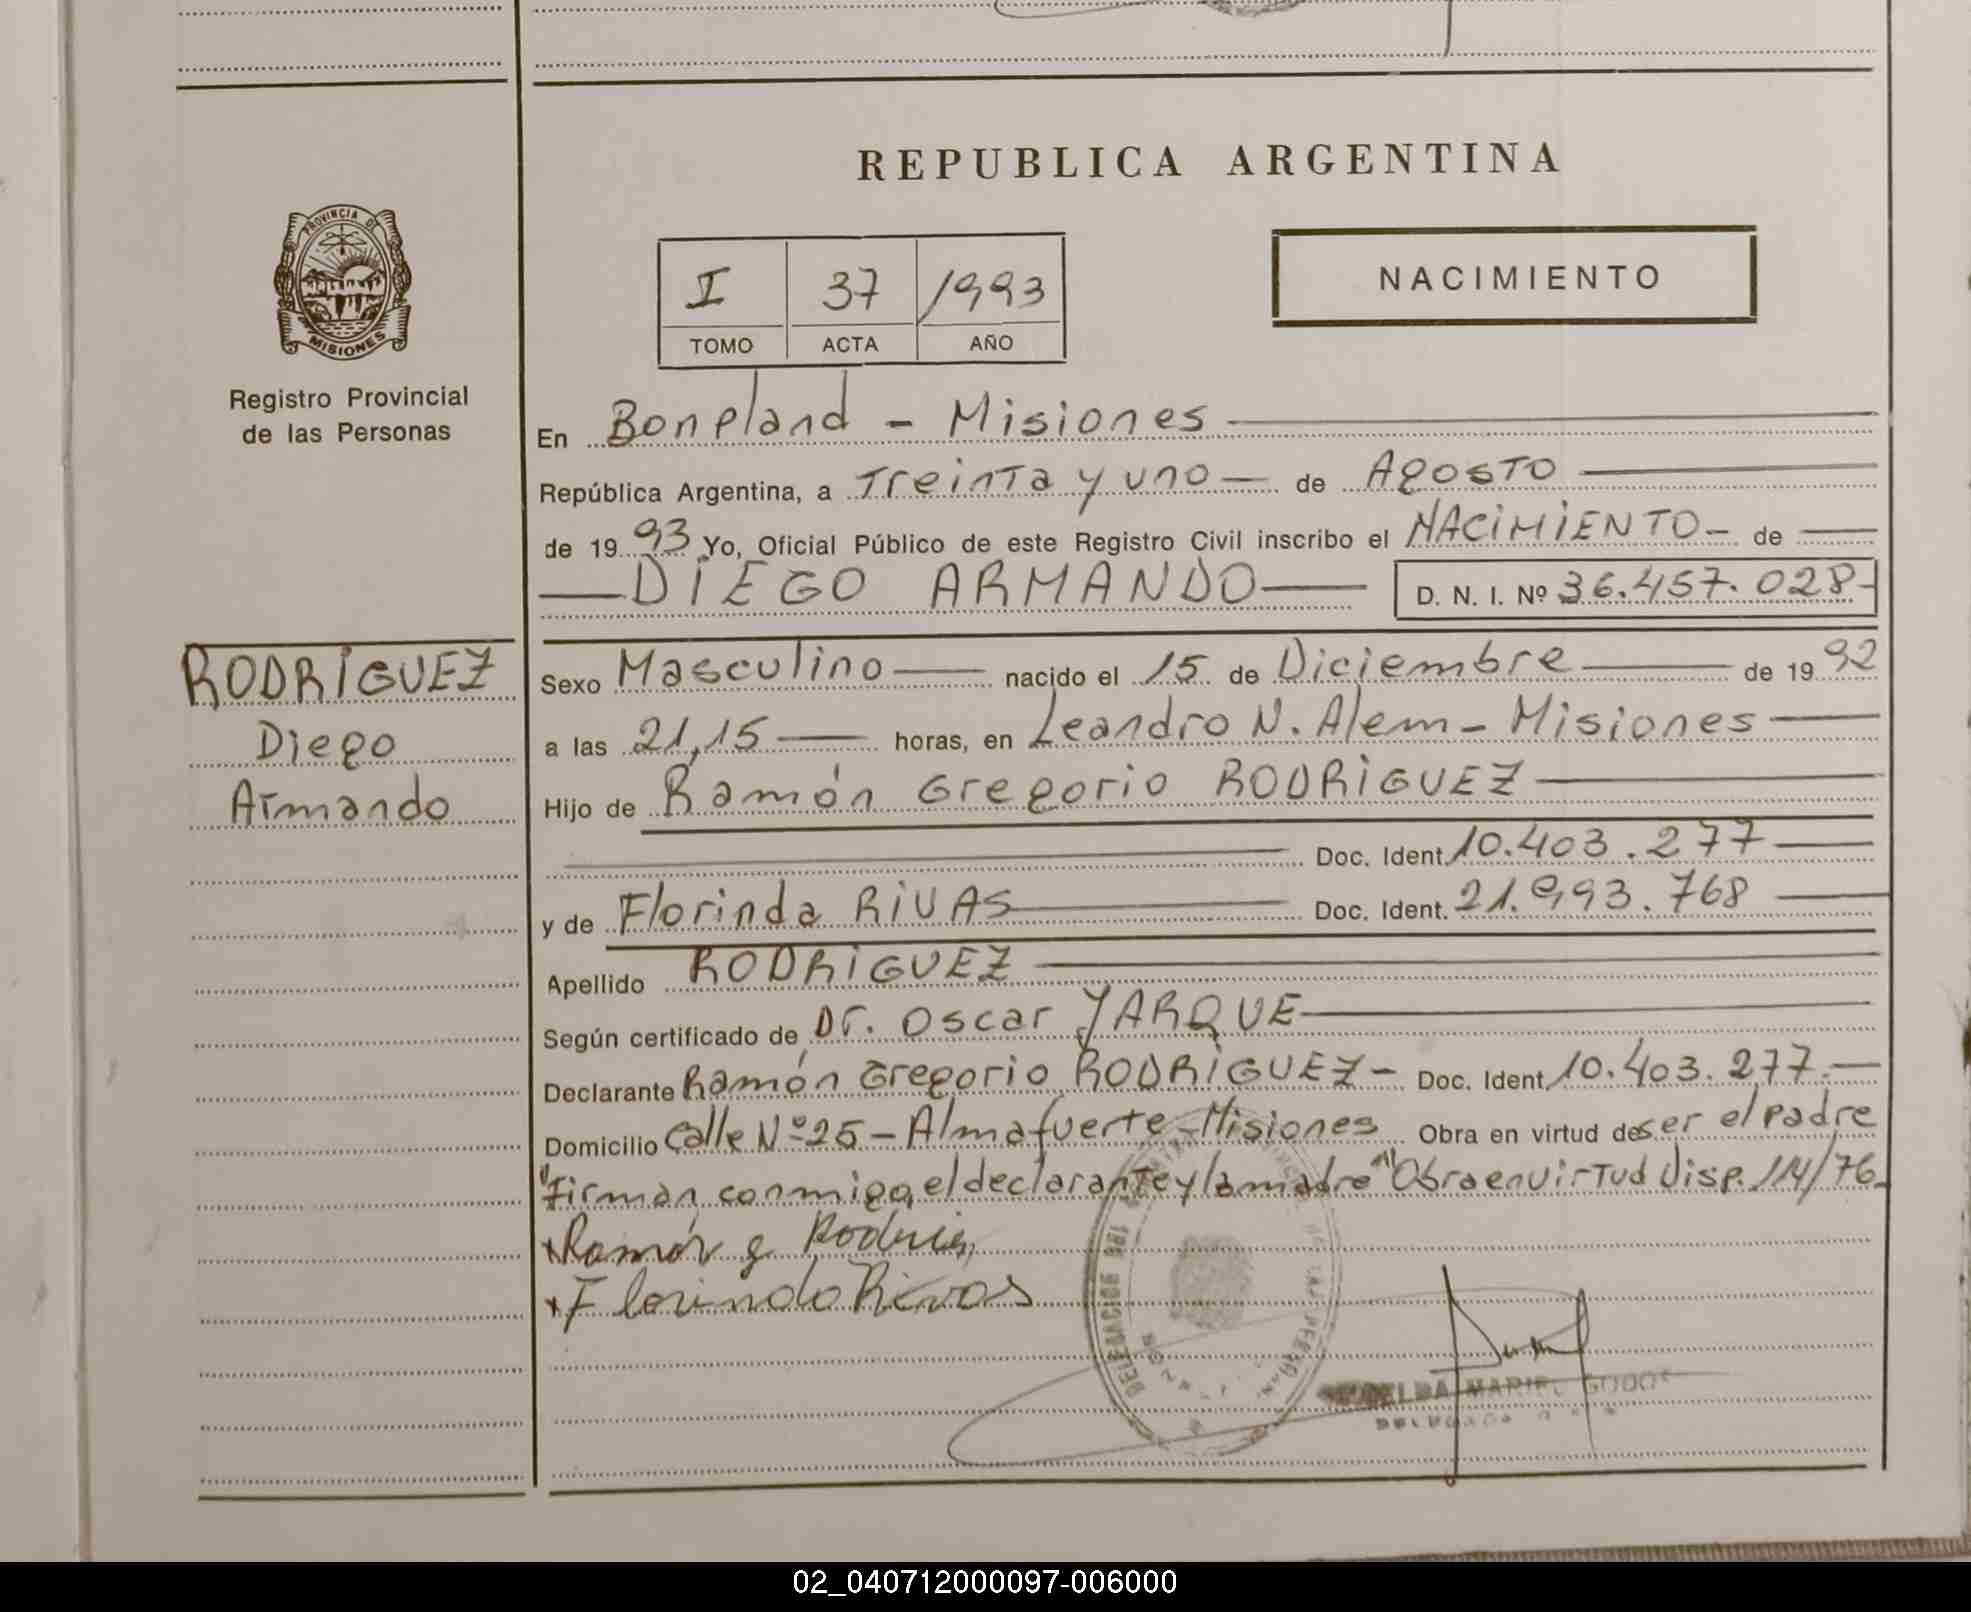 REPUBLICA ARGENTINA
PROVINCIA DE
MISIONES
Registro Provincial
de las Personas
NACIMIENTO
I 37 1993
TOMO ACTA AÑO
En Bonpland - Misiones
República Argentina, a Treinta y uno de Agosto
de 1993 Yo, Oficial Público de este Registro Civil inscribo el NACIMIENTO - de
DIEGO ARMANDO D. N. I. Nº 36.457.028-
RODRIGUEZ
Diego
Armando
Sexo Masculino nacido el 15 de Diciembre de 1992
a las 21,15 horas, en Leandro N. Alem - Misiones
Hijo de Ramón Gregorio RODRIGUEZ
Doc. Ident. 10.403.277
y de Florinda RIVAS Doc. Ident. 21.993.768
Apellido RODRIGUEZ
Según certificado de Dr. Oscar YARQUE
Declarante Ramón Gregorio RODRIGUEZ - Doc. Ident. 10.403.277.
Domicilio Calle Nº 25 - Almafuerte - Misiones Obra en virtud de ser el padre
"Firman conmigo, el declarante y la madre" Obra en virtud Disp. 114/76.
Ramón G Rodrig
Florinda Rivas
MARIEL GODOY
02_040712000097-006000